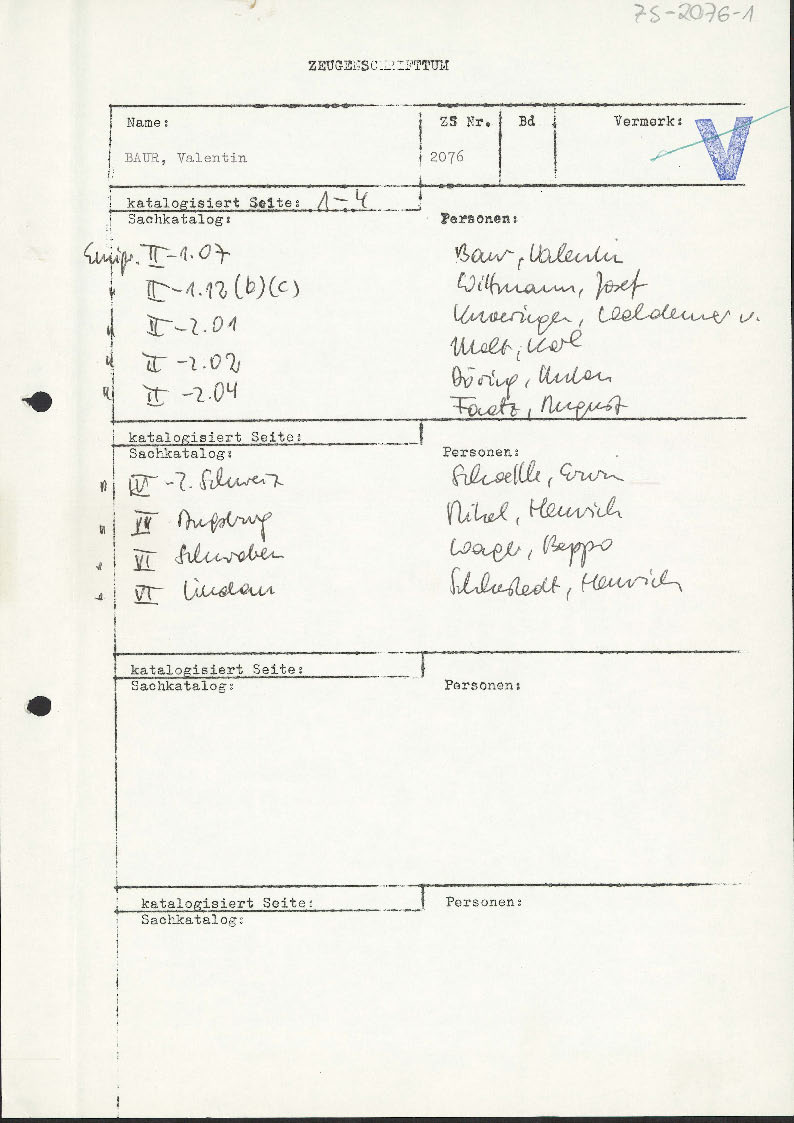 ZS-2076-1
ZEUGENSCHRIFTTUM
Name: ZS Nr. Bd Vermerk:
V
BAUR, Valentin 2076
katalogisiert Seite: 1-4
Sachkatalog: Personen:
Emigr. II-1.07 Baur, Valentin
" II-1.12 (b)(c) Wittmann, Josef
" II-2.01 Knoeringen, Waldemar v.
" II-2.02 Karl
" II-2.04 Döring, Anton
Faatz, August
katalogisiert Seite:
Sachkatalog: Personen:
" IV-2. Schweiz Schoettle, Erwin
" Augsburg Heinrich
" VI Schwaben Wager, Beppo
" VI Lindau Heinrich
katalogisiert Seite:
Sachkatalog: Personen:
katalogisiert Seite: Personen:
Sachkatalog: